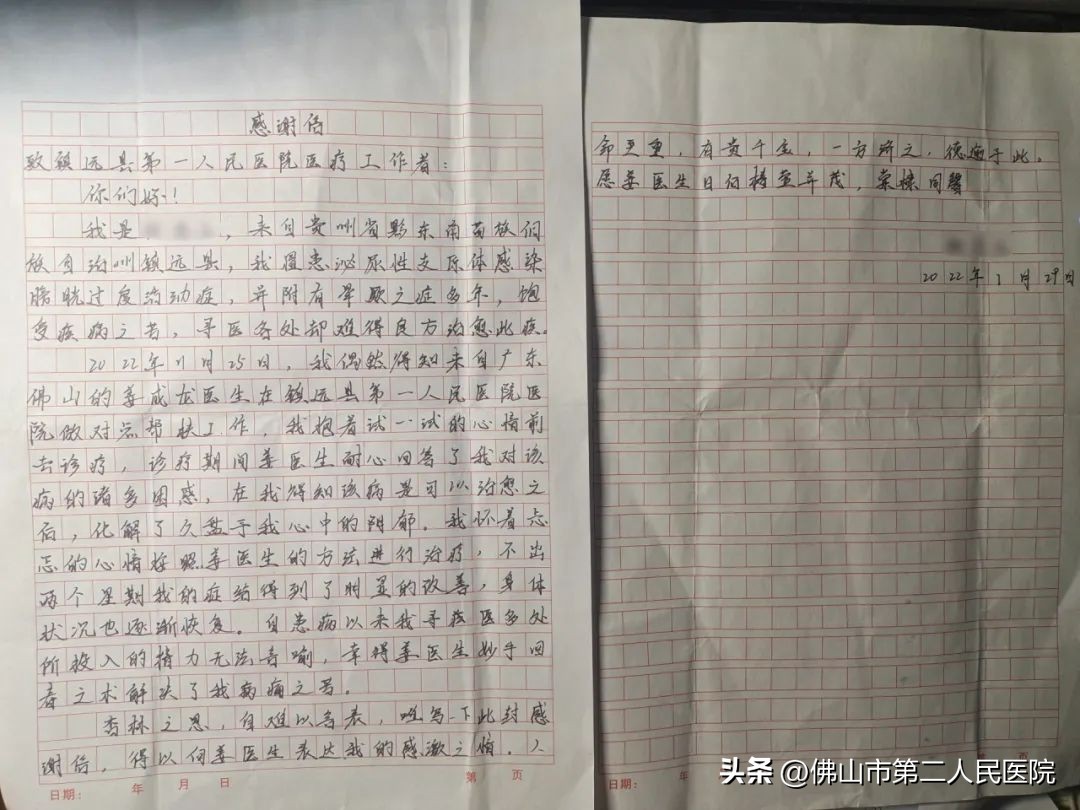 感谢信
致镇远县第一人民医院医疗工作者：
你们好！
我是，来自贵州省黔东南苗族侗
族自治州镇远县，我罹患泌尿性支原体感染
膀胱过度活动症，并附有晕厥之症多年，饱
受疾病之苦，寻医各处却难得良方治愈此疾。
2022年11月25日，我偶然得知来自广东
佛山的姜成龙医生在镇远县第一人民医院医
院做对点帮扶工作，我抱着试一试的心情前
去诊疗，诊疗期间姜医生耐心回答了我对该
病的诸多困惑，在我得知该病是可以治愈之
后，化解了久盘于我心中的阴郁。我怀着忐
忑的心情按照姜医生的方法进行治疗，不出
两个星期我的症结得到了明显的改善，身体
状况也逐渐恢复。自患病以来我寻药医多处
所投入的精力无法言喻，幸得姜医生妙手回
春之术解决了我病痛之苦。
杏林之恩，自难以言表，唯写一下此封感
谢信，得以向姜医生表达我的感激之情。人
日期： 年 月 日 第 页
命至重，有贵千金，一方济之，德逾于此。
愿姜医生日后椿萱并茂，棠棣同馨
2022年1月29日
日期： 年
头条 @佛山市第二人民医院